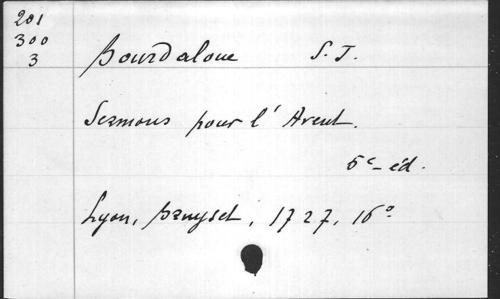 201
300
3
Bourdaloue S. J.
Sermons pour l'Avent.
5e éd.
Lyon, Bruyset, 1727, 16°